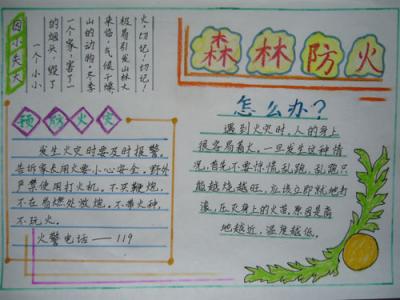 森林防火
因小失大
一个小小
的烟头，毁了
一个家，害了一
山的动物。冬季
来临，气候干燥
极易引发山林大
火，切记！切记！
预防火灾
发生火灾时要及时报警。
告诉家长用火要小心安全，野外
严禁使用打火机，不买鞭炮，
不在易燃处放炮，不带火种，
不玩火。
火警电话——119
怎么办？
遇到火灾时，人的身上
很容易着火，一旦发生这种情
况，首先不要惊慌乱跑，乱跑只
能越烧越旺，应该立即就地打
滚，压灭身上的火苗，原因是离
地越近，温度越低。